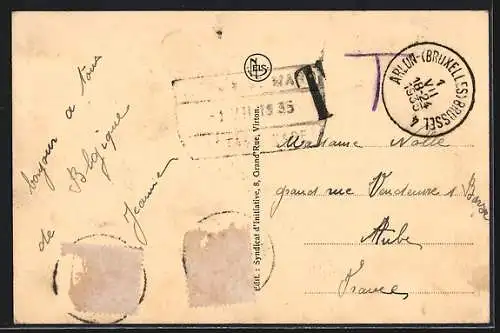 bonjour a tous
de Belgique
Jeanne
NELS
Edit. : Syndicat d'Initiative, 8, Grand'Rue, Virton.
1 VII 1935
T
T
ARLON-(BRUXELLES)BRUSSEL 4
1
VII
18-24
1935
Madame Nolle
grand rue Vendeuvre s/ Barse
Aube
France